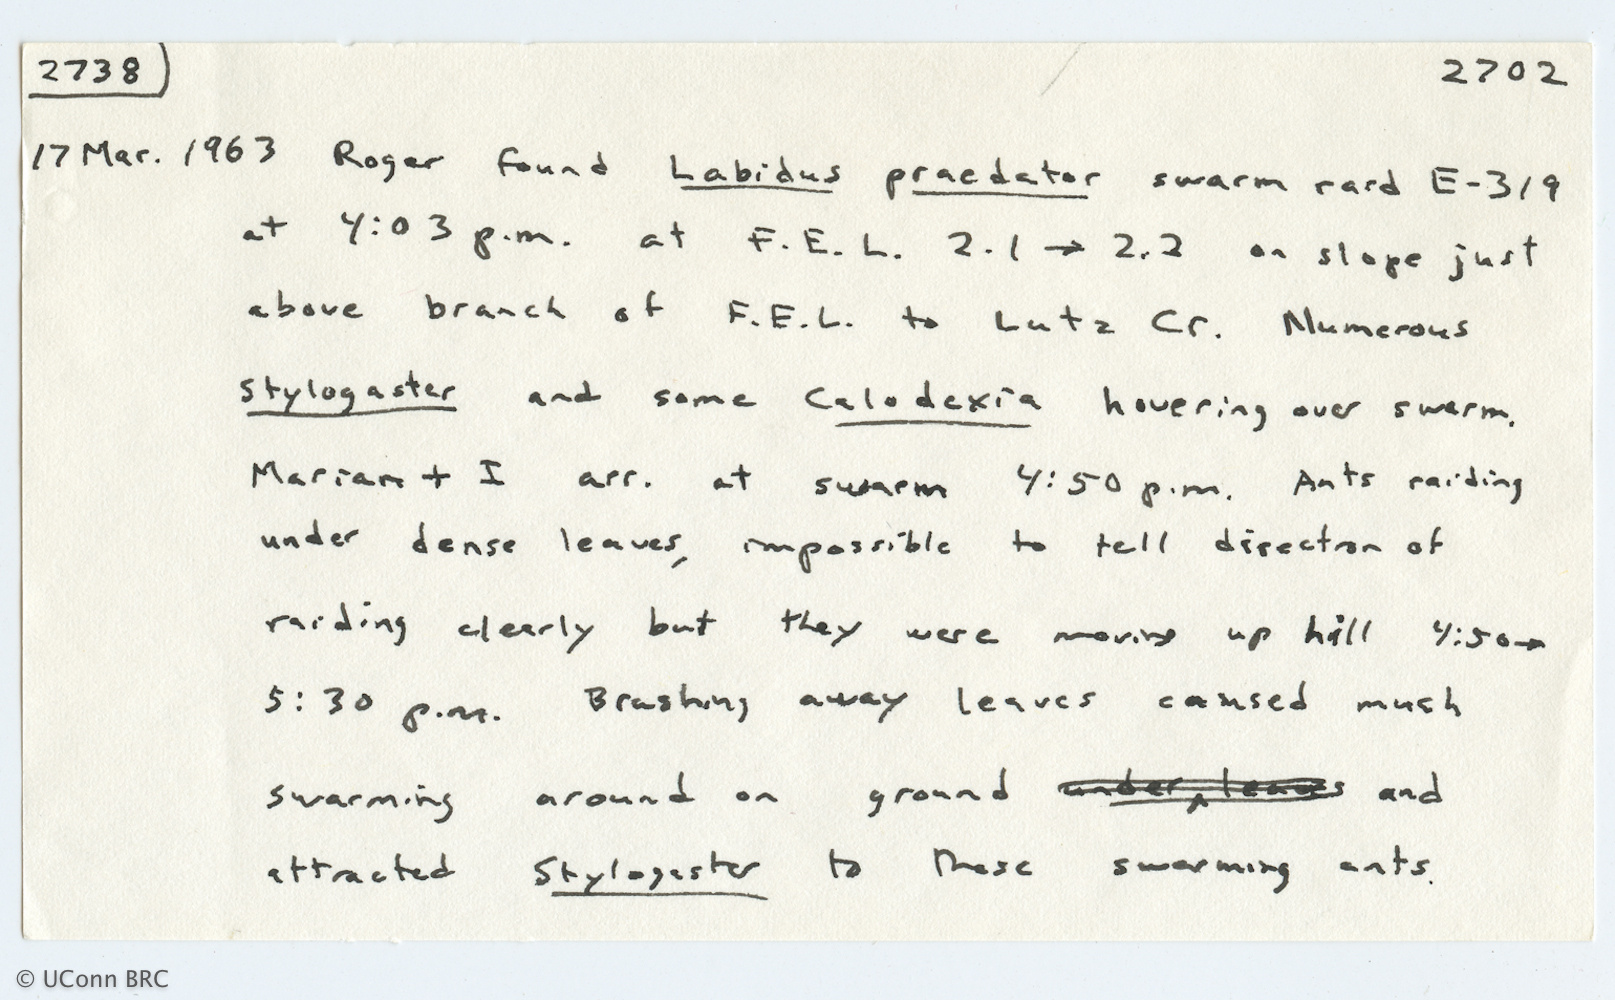 2738 2702
17 Mar. 1963 Roger found Labidus praedator swarm raid E-319
at 4:03 p.m. at F.E.L. 2.1 → 2.2 on slope just
above branch of F.E.L. to Lutz Cr. Numerous
Stylogaster and some Calodexia hovering over swarm.
Marian + I arr. at swarm 4:50 p.m. Ants raiding
under dense leaves, impossible to tell direction of
raiding clearly but they were moving up hill 4:50→
5:30 p.m. Brushing away leaves caused much
swarming around on ground under leaves and
attracted Stylogaster to these swarming ants.
© UConn BRC